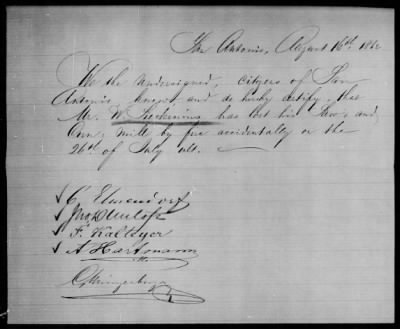 San Antonio, August 16th, 186
We the undersigned, cityzens of San
Antonio know, and do hereby certify, that
Mr. W. has lost his Saw, and
Corn, mill by fire accidentally on the
26th of July ult.
C. Elmendorf
F. Kalteyer
A Hartmann